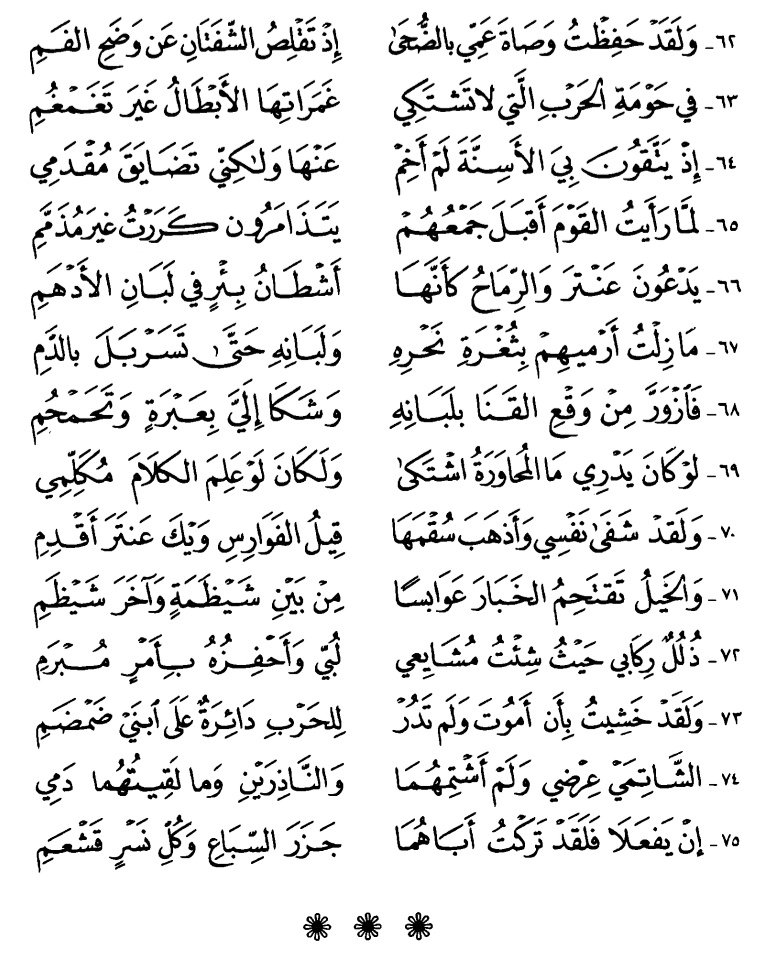 ٦٢- وَلَقَدْ حَفِظْتُ وَصَاةَ عَمِّي بِالضُّحَىٰ إِذْ تَقْلِصُ الشَّفَتَانِ عَن وَضَحِ الفَمِ
٦٣- في حَوْمَةِ الحَرْبِ الَّتي لا تَشْتَكِي غَمَرَاتِهَا الأَبْطَالُ غَيرَ تَغَمْغُمِ
٦٤- إِذْ يَتَّقُونَ بِيَ الأَسِنَّةَ لَمْ أَخِمْ عَنْهَا وَلٰكِنِّي تَضَايَقَ مُقْدَمِي
٦٥- لمَّا رَأَيتُ القَوْمَ أَقبَلَ جَمْعُهُمْ يَتَذَامَرُون كَرَرْتُ غيرَ مُذَمَّمِ
٦٦- يَدْعُونَ عَنْتَرَ وَالرِّمَاحُ كأَنَّهَا أَشْطَانُ بِئْرٍ في لَبَانِ الأَدْهَمِ
٦٧- مَا زِلْتُ أَرْمِيهِمْ بِثُغْرَةِ نَحْرِهِ وَلَبَانِهِ حَتَّىٰ تَسَرْبَلَ بالدَّمِ
٦٨- فَٱزْوَرَّ مِنْ وَقْعِ القَنَا بلَبَانِهِ وَشَكَا إِلَيَّ بِعَبْرَةٍ وَتَحَمْحُمِ
٦٩- لوْ كَانَ يَدْرِي مَا المُحاوَرَةُ اشْتَكىٰ وَلَكَانَ لَوْ عَلِمَ الكلَامَ مُكَلِّمِي
٧٠- وَلَقَدْ شَفَىٰ نَفْسِي وَأَذهَبَ سُقْمَهَا قِيلُ الفَوَارِسِ وَيْكَ عَنتَرَ أَقْدِمِ
٧١- وَالخَيلُ تَقتَحِمُ الخَبَارَ عَوَابسًا مِنْ بَيْنِ شَيْظَمَةٍ وَآخَرَ شَيْظَمِ
٧٢- ذُلُلٌ رِكَابي حَيْثُ شِئْتُ مُشَايِعي لُبِّي وَأَحْفِزُهُ بأَمْرٍ مُبْرَمِ
٧٣- وَلَقَدْ خَشِيتُ بِأَن أَموُتَ وَلَم تَدُرْ لِلحَرْبِ دَائِرَةٌ عَلَى ٱبنَيْ ضَمْضَمِ
٧٤- الشَّاتِمَيْ عِرْضي وَلَمْ أَشْتِمْهُمَا وَالنَّاذِرَيْنِ وَما لَقِيتُهُما دَمِي
٧٥- إِنْ يَفعَلَا فَلَقَدْ تَرَكْتُ أَبَاهُمَا جَزَرَ السِّبَاعِ وَكُلِّ نَسْرٍ قَشْعَمِ